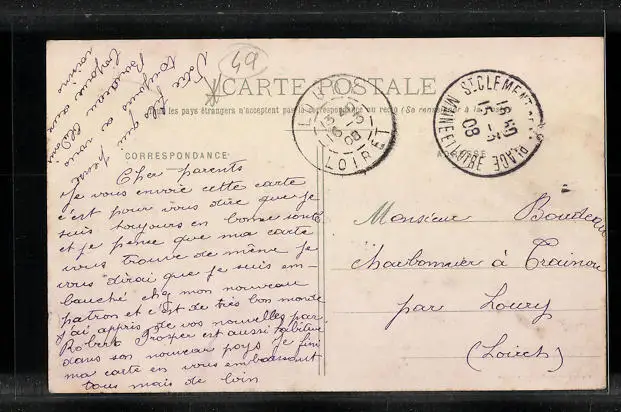 49
CARTE POSTALE
les pays étrangers n'acceptent pas la correspondance au recto (Se renseigner à la poste)
CORRESPONDANCE
ADRESSE
Cher parents
Je vous envoie cette carte
c'est pour vous dire que je
suis toujours en bonne santé
et je pense que ma carte
vous trouve de même je
vous dirai que je suis em-
bauché chez mon nouveau
patron et c'est de très bon monde
j'ai appris de vos nouvelles par
Robert Prosper est aussi
dans son nouveau pays je fini
ma carte en vous embrassant
tous mais de loin
Votre fils qui pense
toujours a vous
Boudeau
Monsieur Boudeau
charbonnier à Trainou
par Loury
(Loiret)
ST CLEMENT PLACE
16 40
15 -5
08
MAINE ET LOIRE
LOIRET
08